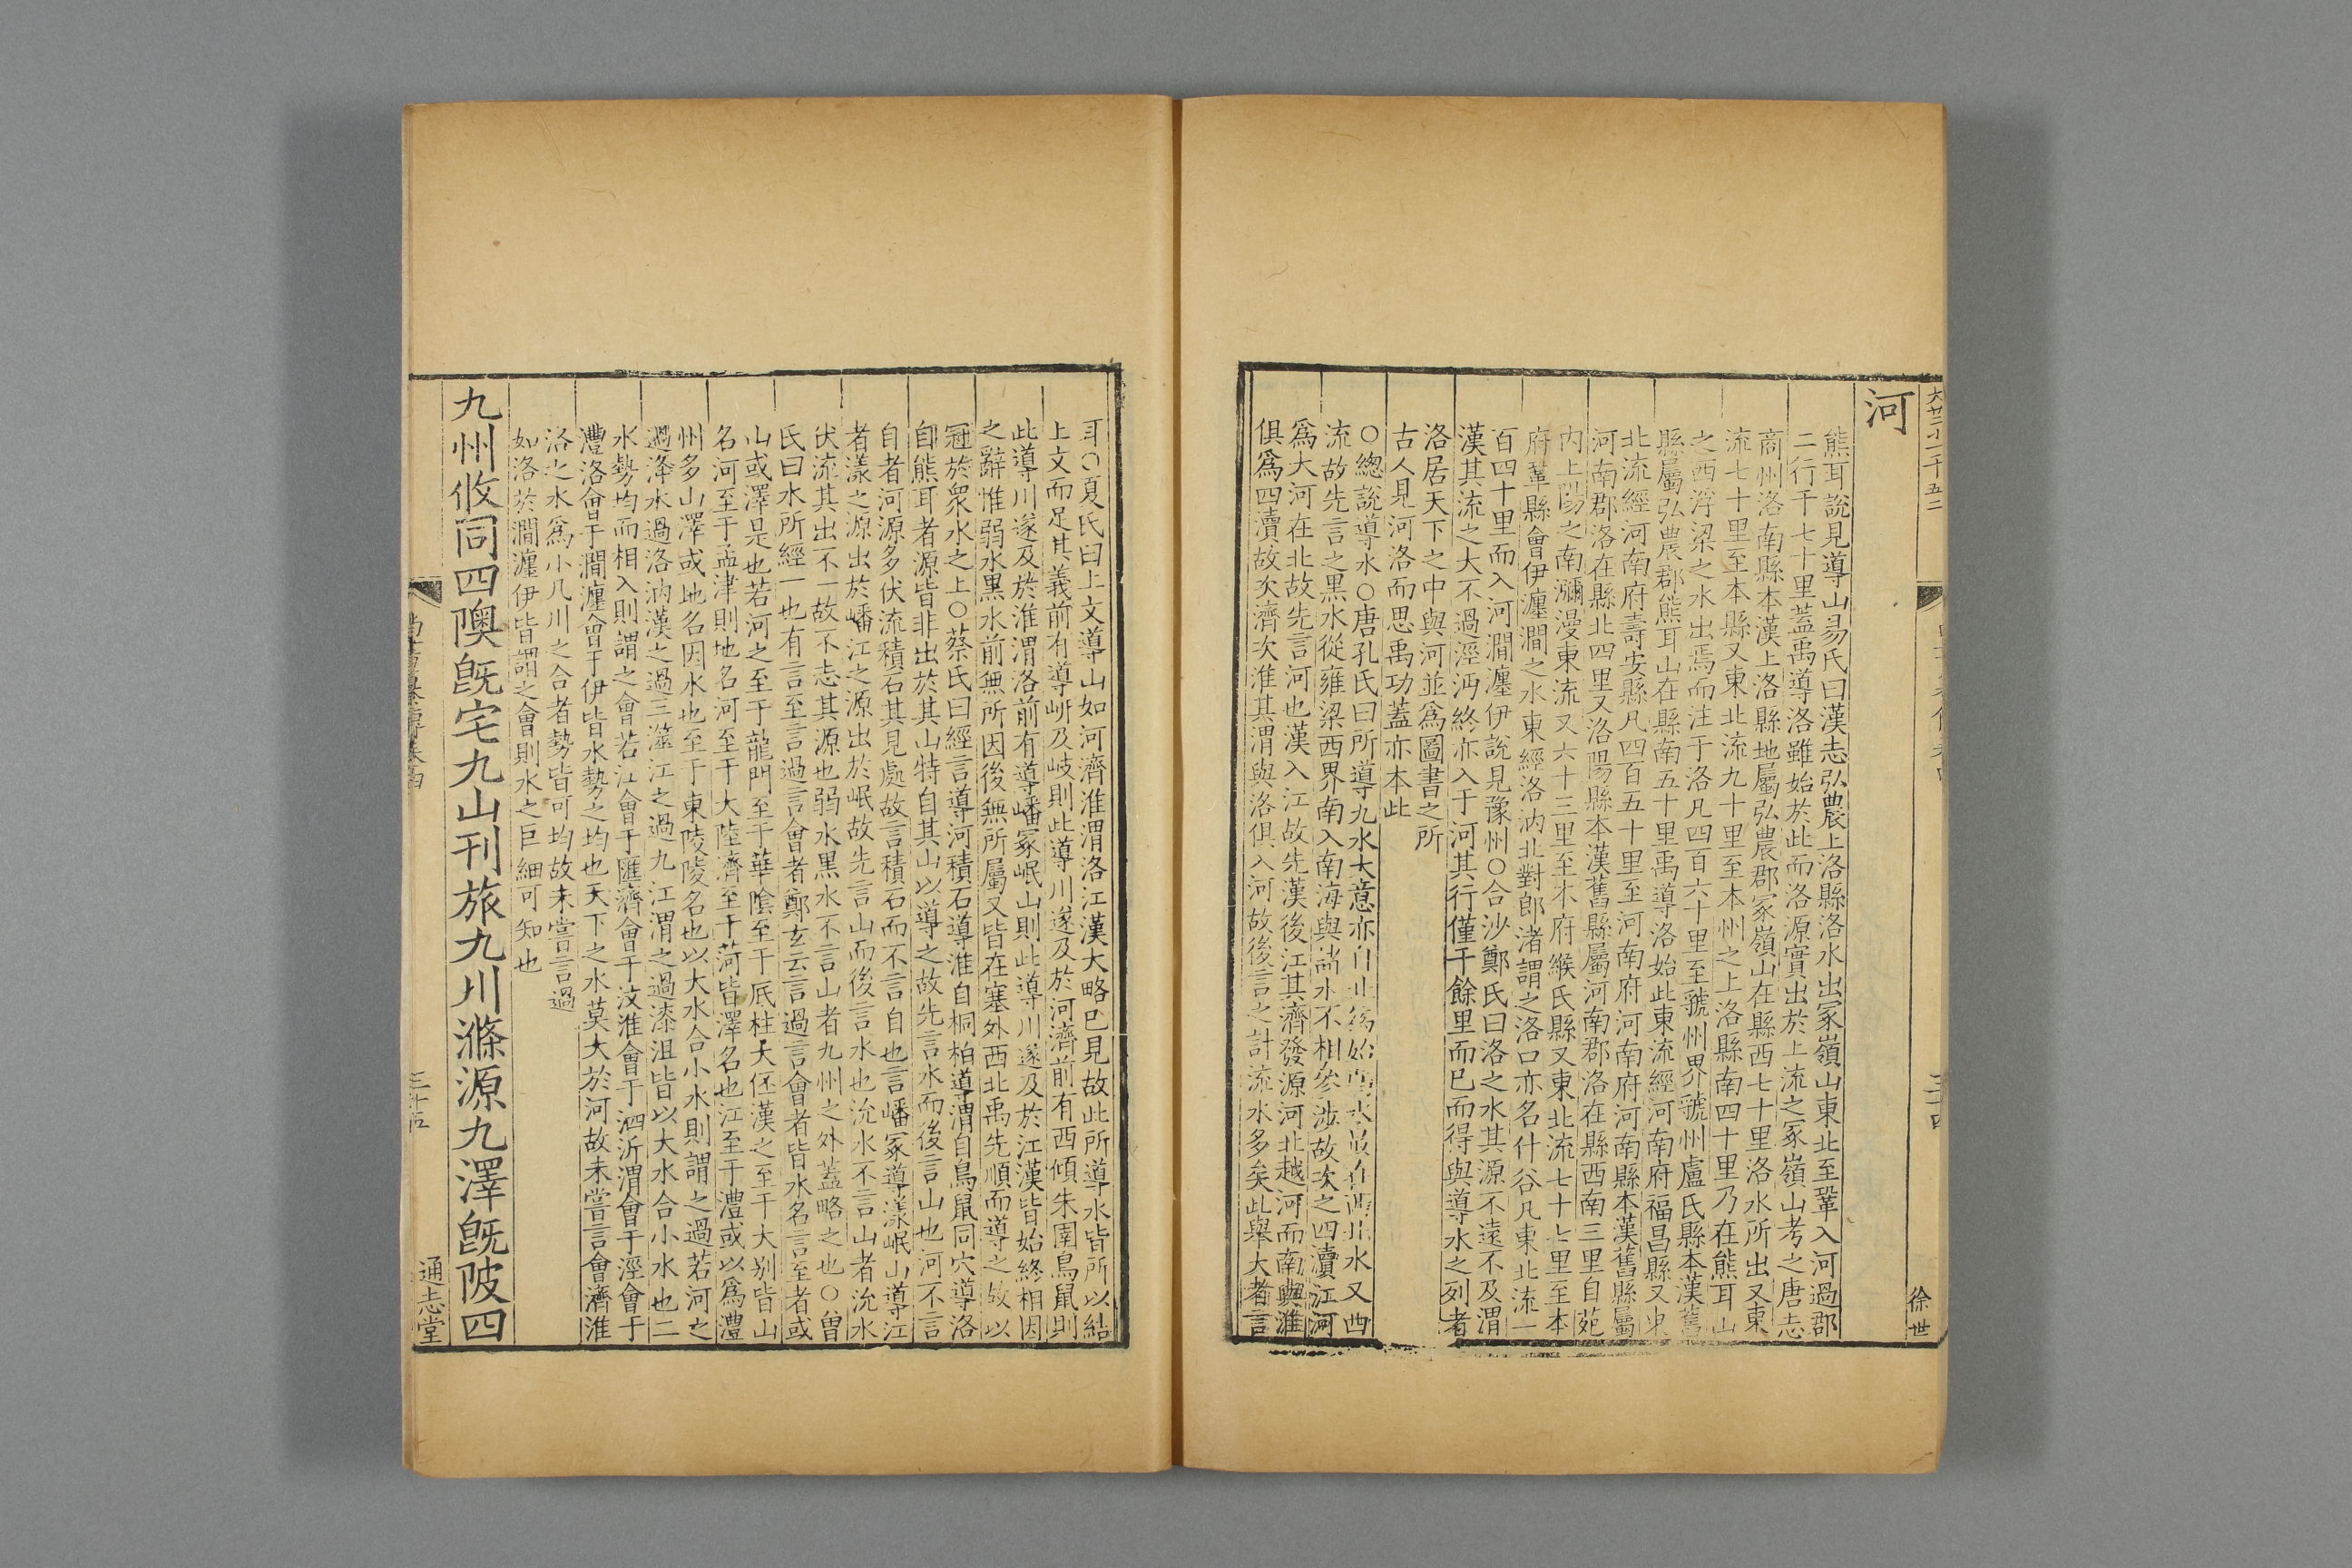 河
熊耳說見導山易氏曰漢志弘農上洛縣洛水出冢嶺山東北至鞏入河過郡
二行千七十里蓋禹導洛雖始於此而洛源實出於上流之冢嶺山考之唐志
商州洛南縣本漢上洛縣地屬弘農郡冢嶺山在縣西七十里洛水所出又東
流七十里至本縣又東北流九十里至本州之上洛縣南四十里乃在熊耳山
之西浮梁之水出焉而注于洛凡四百六十里至虢州界虢州盧氏縣本漢舊
縣屬弘農郡熊耳山在縣南五十里禹導洛始此東流經河南府福昌縣又東
北流經河南府壽安縣凡四百五十里至河南府河南府河南縣本漢舊縣屬
河南郡洛在縣北四里又洛陽縣本漢舊縣屬河南郡洛在縣西南三里自苑
内上陽之南瀰漫東流又六十三里至本府緱氏縣又東北流七十七里至本
府鞏縣會伊瀍澗之水東經洛汭北對郎渚謂之洛口亦名什谷凡東北流一
百四十里而入河澗瀍伊說見豫州○合沙鄭氏曰洛之水其源不遠不及渭
漢其流之大不過涇沔終亦入于河其行僅千餘里而已而得與導水之列者
洛居天下之中與河並爲圖書之所
古人見河洛而思禹功蓋亦本此
○緫說導水○唐孔氏曰所導九水大意亦自北爲始弱水最在西北水又西
流故先言之黑水從雍梁西界南入南海與諸水不相參涉故次之四瀆江河
爲大河在北故先言河也漢入江故先漢後江其濟發源河北越河而南與淮
俱爲四瀆故次濟次淮其渭與洛俱入河故後言之計流水多矣此舉大者言
耳○夏氏曰上文導山如河濟淮渭洛江漢大略已見故此所導水皆所以結
上文而足其義前有導岍及岐則此導川遂及於河濟前有西傾朱圉鳥鼠則
此導川遂及於淮渭洛前有導嶓冢岷山則此導川遂及於江漢皆始終相因
之辭惟弱水黑水前無所因後無所屬又皆在塞外西北禹先順而導之故以
冠於衆水之上○蔡氏曰經言導河積石導淮自桐柏導渭自鳥鼠同穴導洛
自熊耳者源皆非出於其山特自其山以導之故先言水而後言山也河不言
自者河源多伏流積石其見處故言積石而不言自也言嶓冢導漾岷山導江
者漾之源出於嶓江之源出於岷故先言山而後言水也沇水不言山者沇水
伏流其出不一故不志其源也弱水黑水不言山者九州之外蓋略之也○曽
氏曰水所經一也有言至言過言會者鄭玄云言過言會者皆水名言至者或
山或澤是也若河之至于龍門至于華陰至于厎柱大伾漢之至于大别皆山
名河至于孟津則地名河至于大陸濟至于菏皆澤名也江至于澧或以爲澧
州多山澤或地名因水也至于東陵陵名也以大水合小水則謂之過若河之
過洚水過洛汭漢之過三澨江之過九江渭之過漆沮皆以大水合小水也二
水勢均而相入則謂之會若江會于匯濟會于汶淮會于泗沂渭會于涇會于
灃洛會于澗瀍會于伊皆水勢之均也天下之水莫大於河故未嘗言會濟淮
洛之水爲小凡川之合者勢皆可均故未嘗言過
如洛於澗瀍伊皆謂之會則水之巨細可知也
九州攸同四隩旣宅九山刊旅九川滌源九澤旣陂四
三十四
徐世
三十五
通志堂